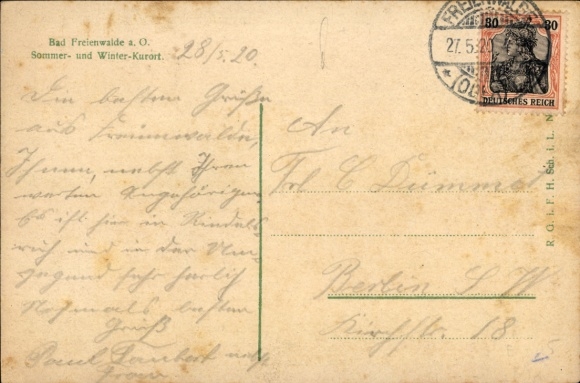 Bad Freienwalde a. O.
Sommer- und Winter-Kurort.
28/5.20
Die besten Grüße
aus Freienwalde,
Ihnen, nebst Ihren
werten Angehörigen
Es ist hier in
und in der Um-
gegend sehr herlich
Nochmals besten
Gruß
Paul Taubert nebst
Frau
An
Frl C Dümmel
Berlin S W
Kirchstr. 18
FREIENWALDE
27.5.20
* (ODER)
30 30
DEUTSCHES REICH